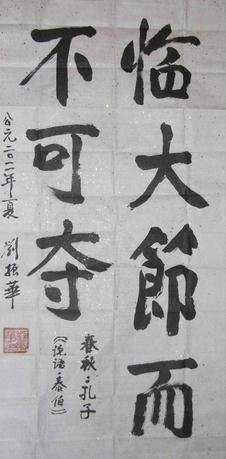 临大節而
不可夺
春秋:孔子
《论语·泰伯》
公元二〇一一年夏
劉振華